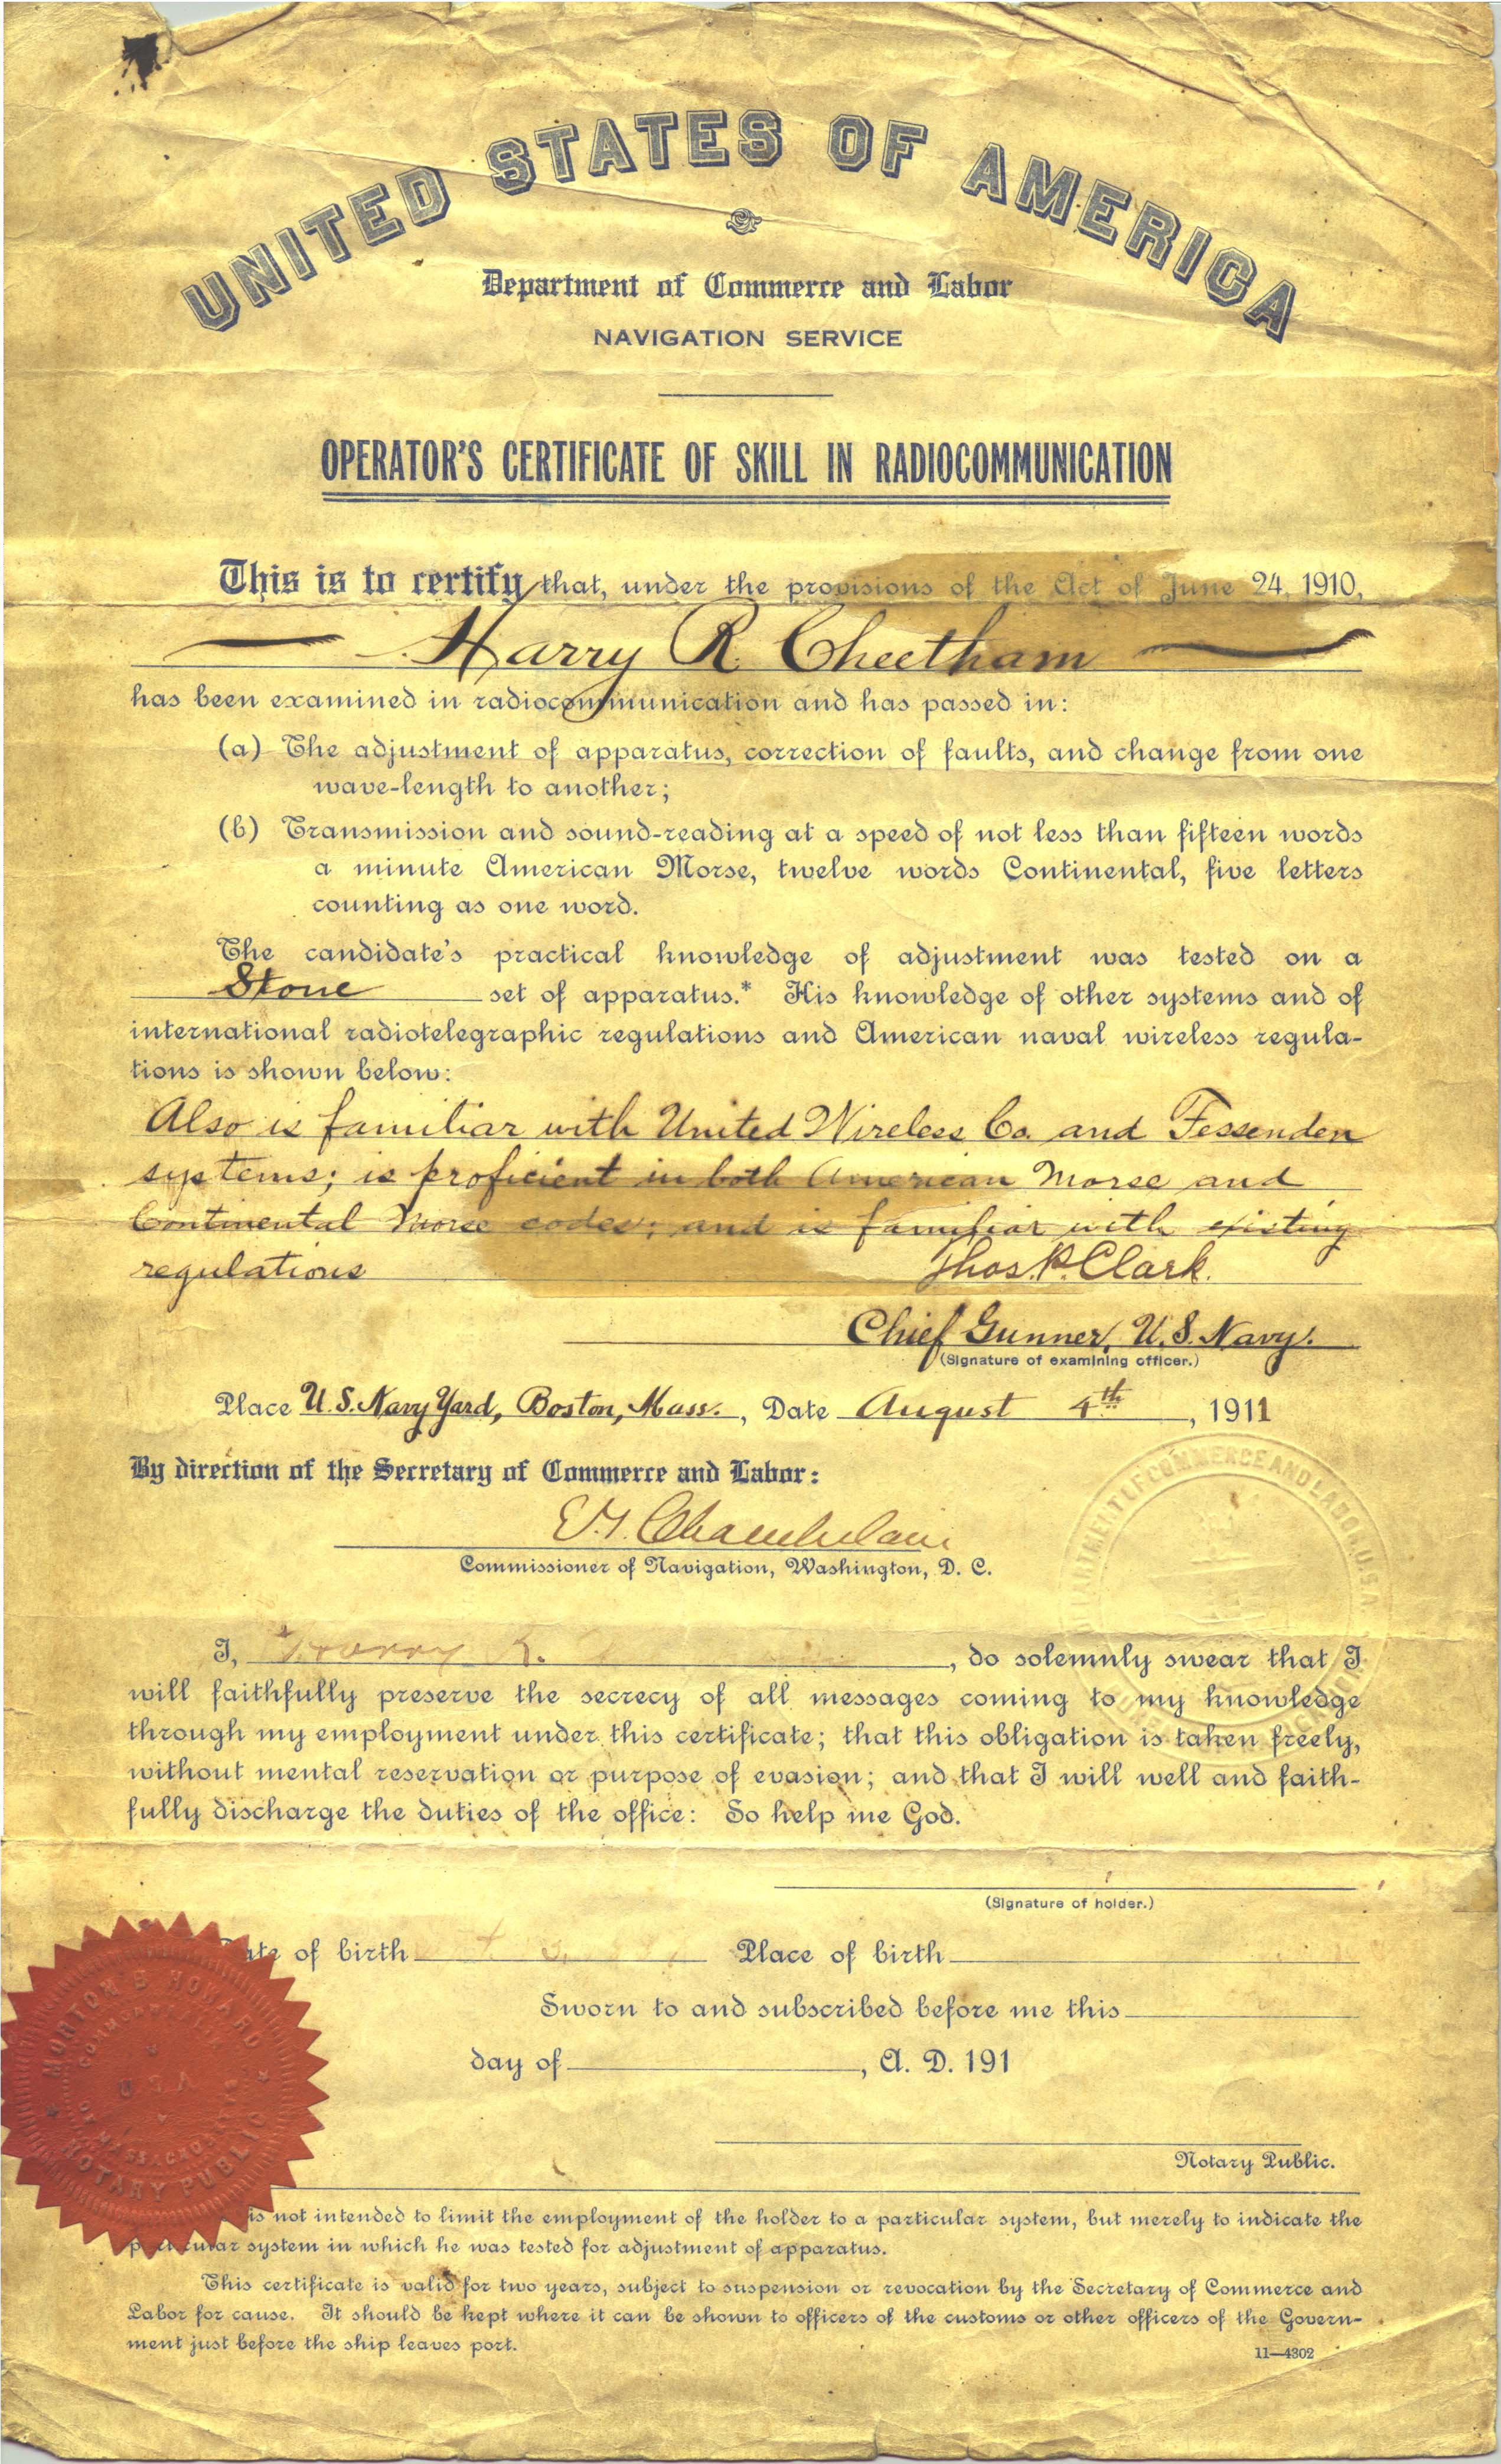 UNITED STATES OF AMERICA
Department of Commerce and Labor
NAVIGATION SERVICE
OPERATOR'S CERTIFICATE OF SKILL IN RADIOCOMMUNICATION
This is to certify that, under the provisions of the Act of June 24, 1910,
Harry R. Cheetham
has been examined in radiocommunication and has passed in:
(a) The adjustment of apparatus, correction of faults, and change from one
wave-length to another;
(b) Transmission and sound-reading at a speed of not less than fifteen words
a minute American Morse, twelve words Continental, five letters
counting as one word.
The candidate's practical knowledge of adjustment was tested on a
Stone set of apparatus.* His knowledge of other systems and of
international radiotelegraphic regulations and American naval wireless regula-
tions is shown below:
Also is familiar with United Wireless Co. and Fessenden
systems; is proficient in both American Morse and
Continental Morse codes; and is familiar with existing
regulations Thos. P. Clark.
Chief Gunner, U.S. Navy.
(Signature of examining officer.)
Place U.S. Navy Yard, Boston, Mass., Date August 4th, 1911
By direction of the Secretary of Commerce and Labor:
E.T. Chamberlain
Commissioner of Navigation, Washington, D. C.
DEPARTMENT OF COMMERCE AND LABOR, U.S.A.
I, Harry R. , do solemnly swear that I
will faithfully preserve the secrecy of all messages coming to my knowledge
through my employment under this certificate; that this obligation is taken freely,
without mental reservation or purpose of evasion; and that I will well and faith-
fully discharge the duties of the office: So help me God.
(Signature of holder.)
Date of birth Place of birth
Sworn to and subscribed before me this
day of , A. D. 191
Notary Public.
NOTARY PUBLIC
U.S.A.
is not intended to limit the employment of the holder to a particular system, but merely to indicate the
particular system in which he was tested for adjustment of apparatus.
This certificate is valid for two years, subject to suspension or revocation by the Secretary of Commerce and
Labor for cause. It should be kept where it can be shown to officers of the customs or other officers of the Govern-
ment just before the ship leaves port.
11—4302